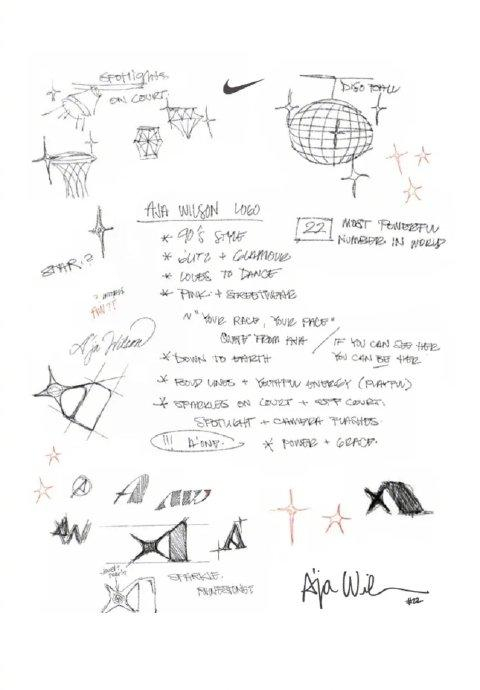 SPOTLIGHTS
ON COURT.
DISO BALL
AJA WILSON LOGO
22
MOST POWERFUL
NUMBER IN WORLD
* 90'S STYLE
* GLITZ + GLAMOUR
* LOVES TO DANCE
* PINK + STREETWEAR
~ "YOUR RACE, YOUR PACE"
QUOTE FROM AJA
IF YOU CAN SEE HER
YOU CAN BE HER
STAR.?
A'ja Wilson
* DOWN TO EARTH
* BOLD LINES + YOUTHFUL ENERGY (PLAYFUL)
* SPARKLES ON COURT + OFF COURT.
SPOTLIGHT + CAMERA FLASHES
A'ONE.
* POWER + GRACE.
A
AW
A
SPARKLE.
A'ja Wil
#22